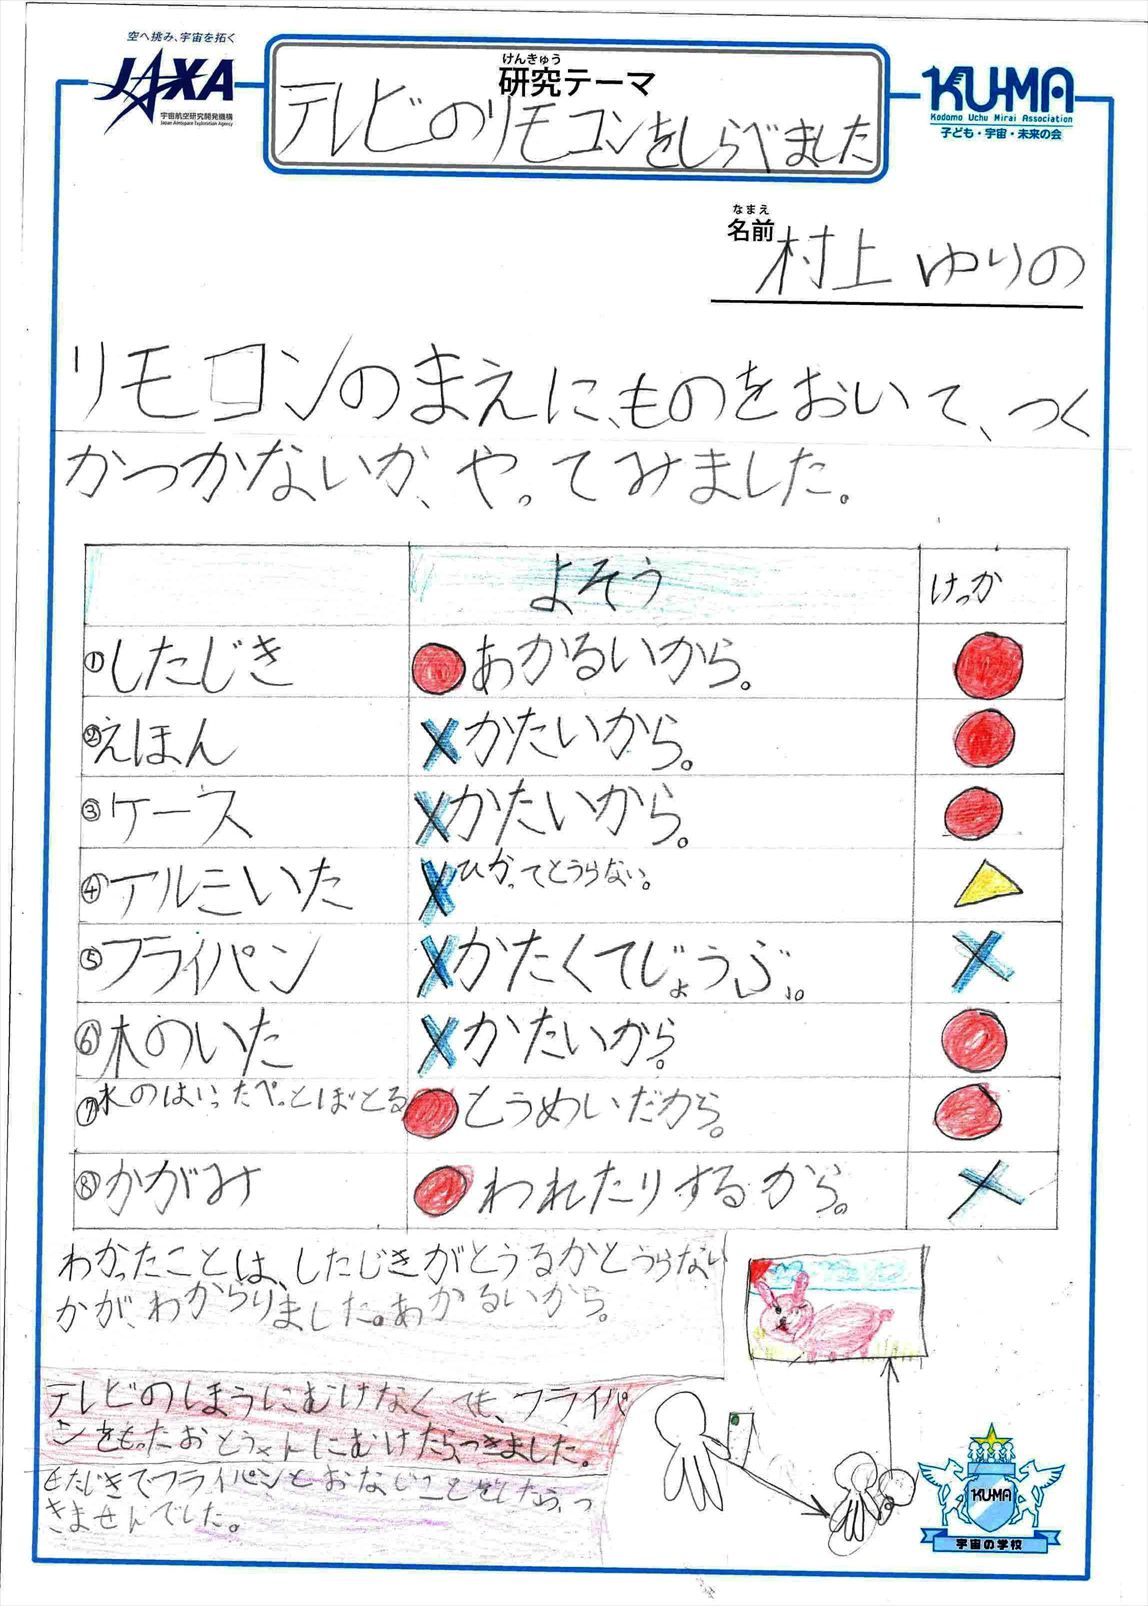 空へ挑み、宇宙を拓く
JAXA
宇宙航空研究開発機構
Japan Aerospace Exploration Agency
けんきゅう
研究テーマ
テレビのリモコンをしらべました
KU-MA
Kodomo Uchu Mirai Association
子ども・宇宙・未来の会
なまえ
名前
村上 ゆりの
リモコンのまえに、ものをおいて、つく
かつかないか、やってみました。
よそう
けっか
①したじき
あかるいから。
②えほん
×かたいから。
③ケース
×かたいから。
④アルミいた
×ひかってとうらない。
⑤フライパン
×かたくてじょうぶ。
×
⑥木のいた
×かたいから。
⑦水のはいったぺっとぼとる
とうめいだから。
⑧かがみ
われたりするから。
×
わかったことは、したじきがとうるかとうらない
かが、わからりました。あかるいから。
テレビのほうにむけなくても、フライパ
ンをもったおとうさんにむけたらつきました。
したじきでフライパンとおなじことをしたら、つ
きませんでした。
KU-MA
宇宙の学校